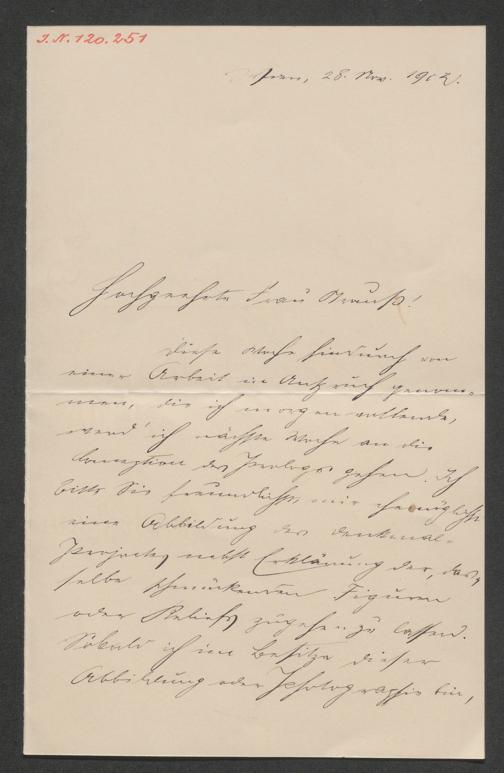 J.N. 120.251
28. Nov. 1902.
Hochgeehrte Frau Strauß!
Diese Woche hindurch von
einer Arbeit in Anspruch genom-
men, die ich morgen vollende,
werd' ich nächste Woche an die
Conception des Prologs gehen. Ich
bitte Sie freundlichst, mir ehemöglichst
eine Abbildung des Denkmal-
Projectes nebst Erklärung der, das-
selbe schmückenden Figuren
oder Reliefs zugehen zu lassen.
Sobald ich im Besitze dieser
Abbildung oder Photographie bin,